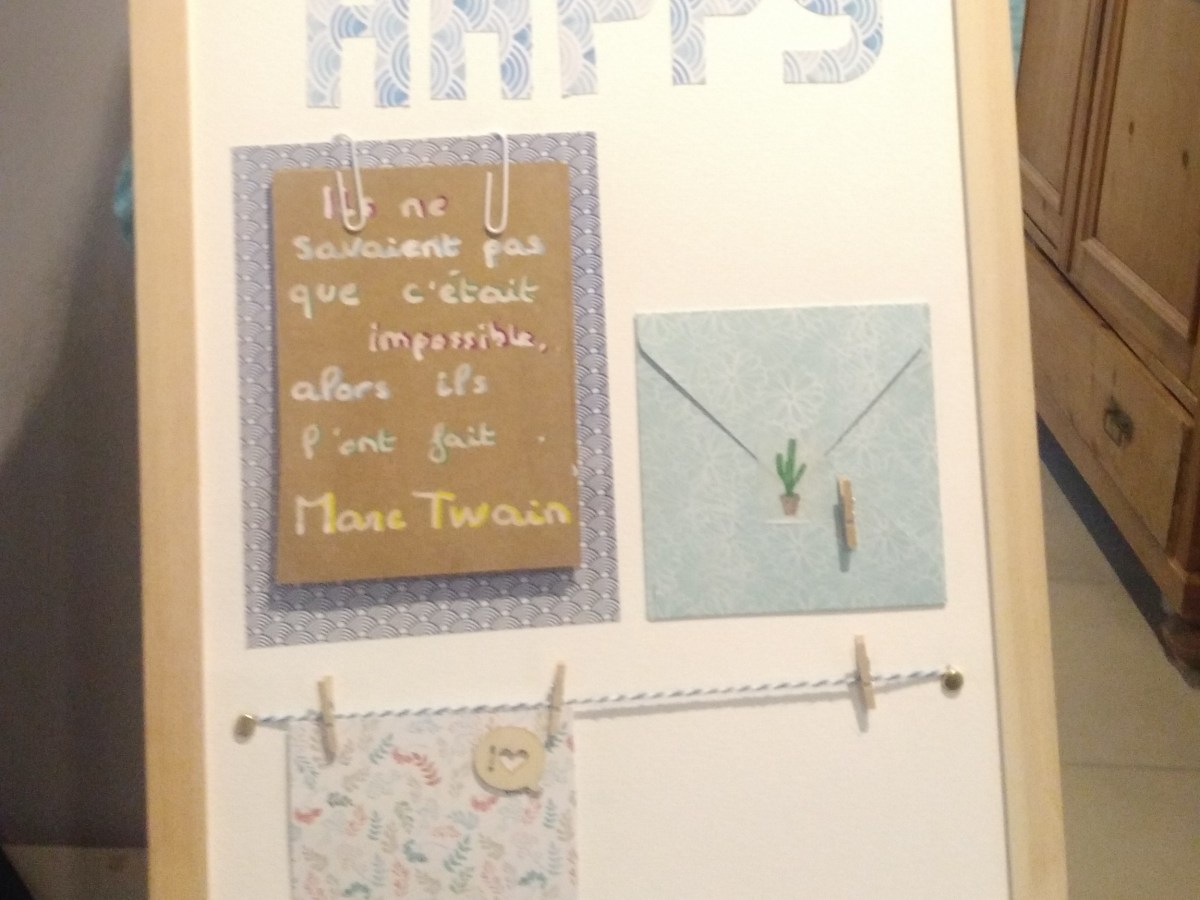 HAPPY
Ils ne
savaient pas
que c'était
impossible,
alors ils
l'ont fait.
Marc Twain